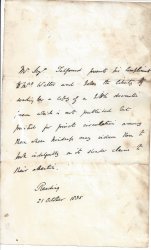 Mr Serjt Talfourd presents his compliments
to Mrs Walter and takes the liberty of
sending her a copy of a little dramatic
poem which is not published but
printed for private circulation among
those whose kindness may induce them to
look indulgently on its slender claims to
their attention.
Reading
21 October 1835